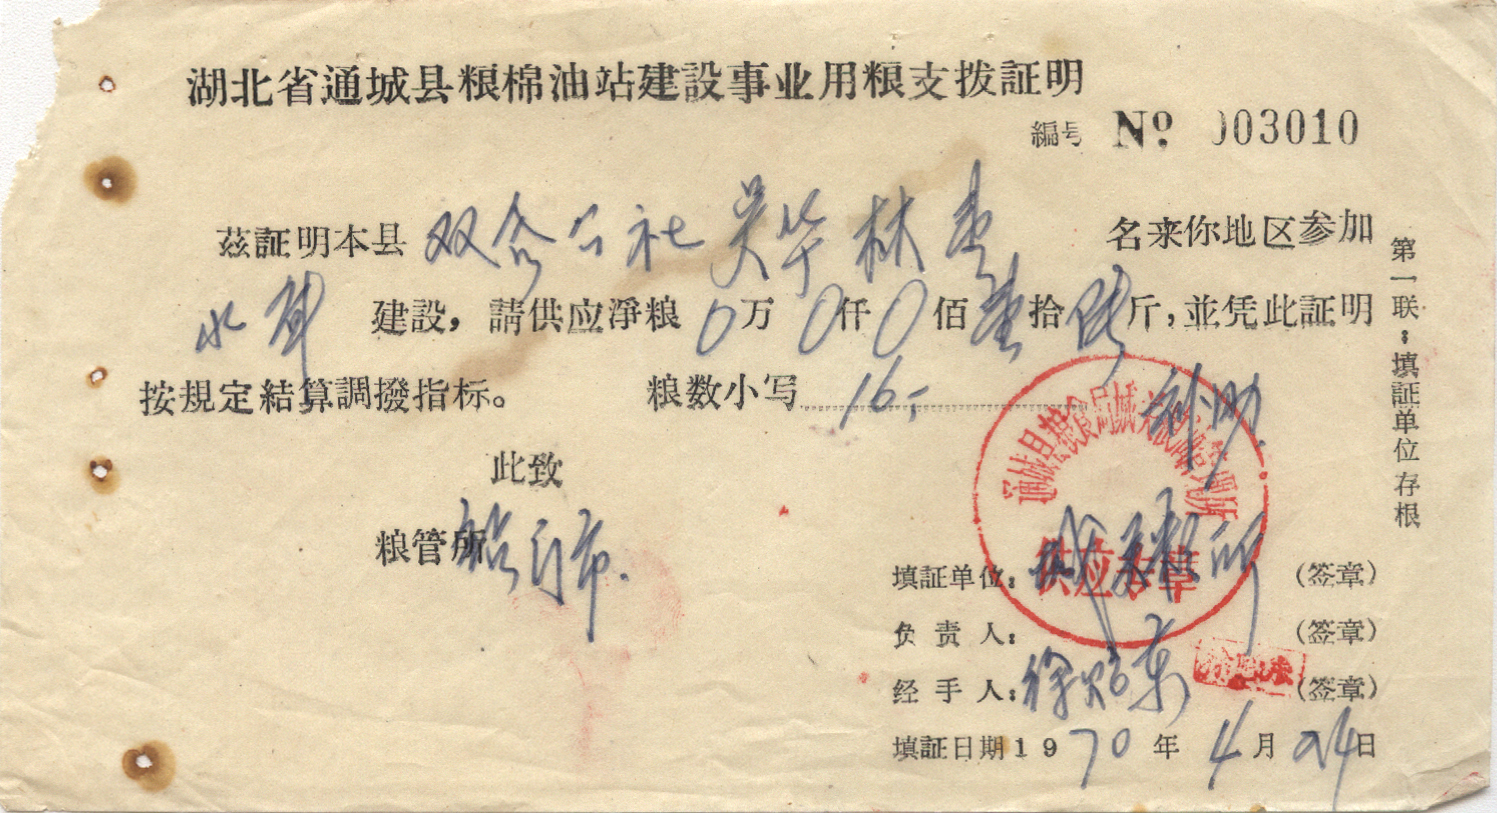 湖北省通城县粮棉油站建設事业用粮支拨証明
編号 № 003010
茲証明本县 双合公社 吴华林 壹 名来你地区参加
水库 建設，請供应淨粮 0 万 0 仟 0 佰 壹 拾 陆 斤，並凭此証明
按規定結算調撥指标。 粮数小写 16.-
补助
此致
粮管所
填証单位： (签章)
负 责 人： (签章)
经 手 人： 徐 东 (签章)
填証日期 1970 年 4 月 24 日
第一联：填証单位存根
通城县粮食局城关粮油管理所
供应专章